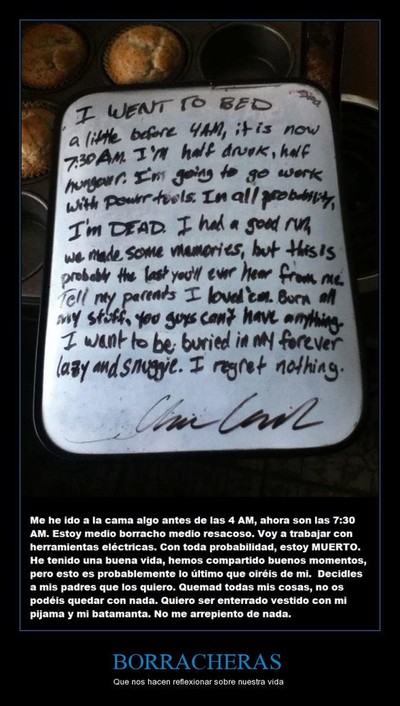 I WENT TO BED
a little before 4AM, it is now
7:30AM. I'm half drunk, half
hungover. I'm going to go work
with power tools. In all probability,
I'm DEAD. I had a good run,
we made some memories, but this is
probably the last you'll ever hear from me.
Tell my parents I loved 'em. Burn all
my stuff, you guys can't have anything.
I want to be buried in my forever
lazy and snuggie. I regret nothing.
Me he ido a la cama algo antes de las 4 AM, ahora son las 7:30
AM. Estoy medio borracho medio resacoso. Voy a trabajar con
herramientas eléctricas. Con toda probabilidad, estoy MUERTO.
He tenido una buena vida, hemos compartido buenos momentos,
pero esto es probablemente lo último que oiréis de mi. Decidles
a mis padres que los quiero. Quemad todas mis cosas, no os
podéis quedar con nada. Quiero ser enterrado vestido con mi
pijama y mi batamanta. No me arrepiento de nada.
BORRACHERAS
Que nos hacen reflexionar sobre nuestra vida